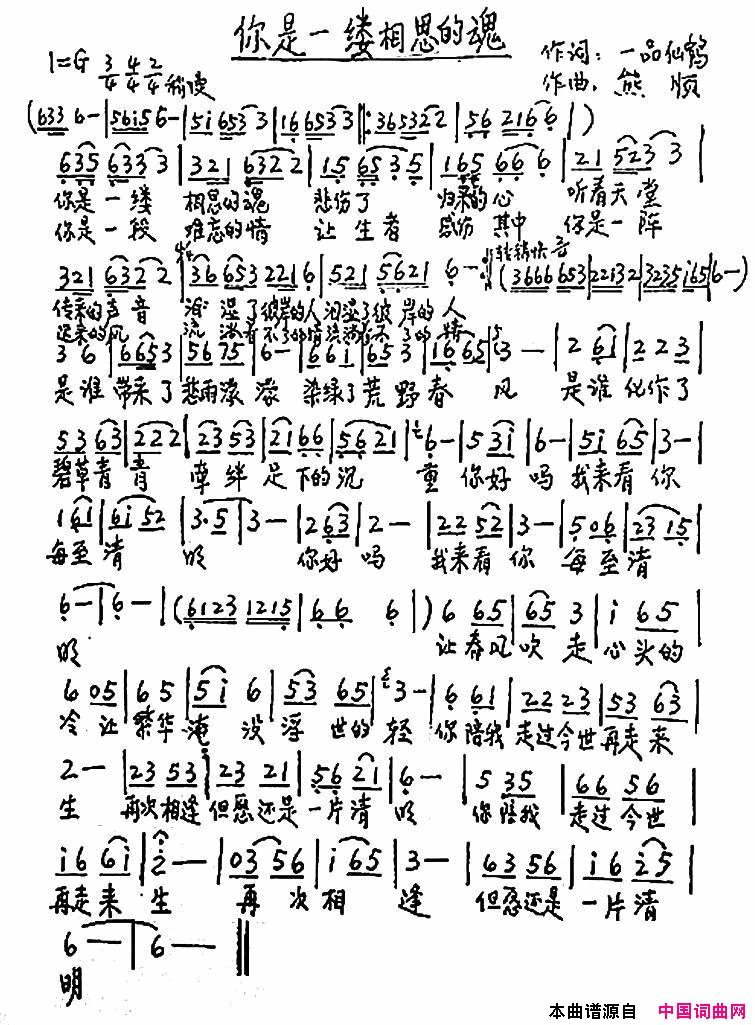 你是一缕相思的魂
1=G 3/4 4/4 2/4 稍慢 作词：一品仙鹤
作曲：熊顺
(633 6-|56i5 6-|5i 653 3|16 653 3‖:365322|56 216 6|)
635 6333|321 6322|15 65 35|165 66 6|21 523 3|
你是一缕 相思的魂 悲伤了 归来的心 听着天堂
你是一段 难忘的情 让生者 感伤其中 你是一阵
321 6322|36 653 221 6|521 5621 6-:‖转稍快(3666 653|22132|3235i65|6-)
传来的声音 湿了彼岸的人 泪湿了彼岸的人
迎来的风 流淌着不了的情 流淌着不了的情
3 6|6653|56 75|6-|661|65 3|16 65|3-|2 61|22 3|
是谁带来了悲雨濛濛 染绿了荒野春风 是谁化作了
53 63|222|23 53|21 66|5621|6-|5 3i|6-|5i 65|3-|
碧草青青 牵绊足下的沉重 你好吗 我来看你
1 61|6i 52|3·5|3-|2 63|2-|22 52|3-|5 06|23 15|
每至清明 你好吗 我来看你 每至清
6-|6-|(6123 1215|66 6|)6 65|65 3|i 65|
明 让春风吹走心头的
6 05|65|5i 6|53 65|3-|6 61|22 23|53 63|
冷 让繁华淹没浮世的轻 你陪我走过今世再走来
2-|23 53|23 21|56 21|6-|5 35|66 56|
生 再次相逢但愿还是一片清明 你陪我走过今世
i6 6i|2-|03 56|i 65|3-|63 56|i6 25|
再走来生 再次相逢 但愿还是一片清
6-|6-‖
明
本曲谱源自 中国词曲网